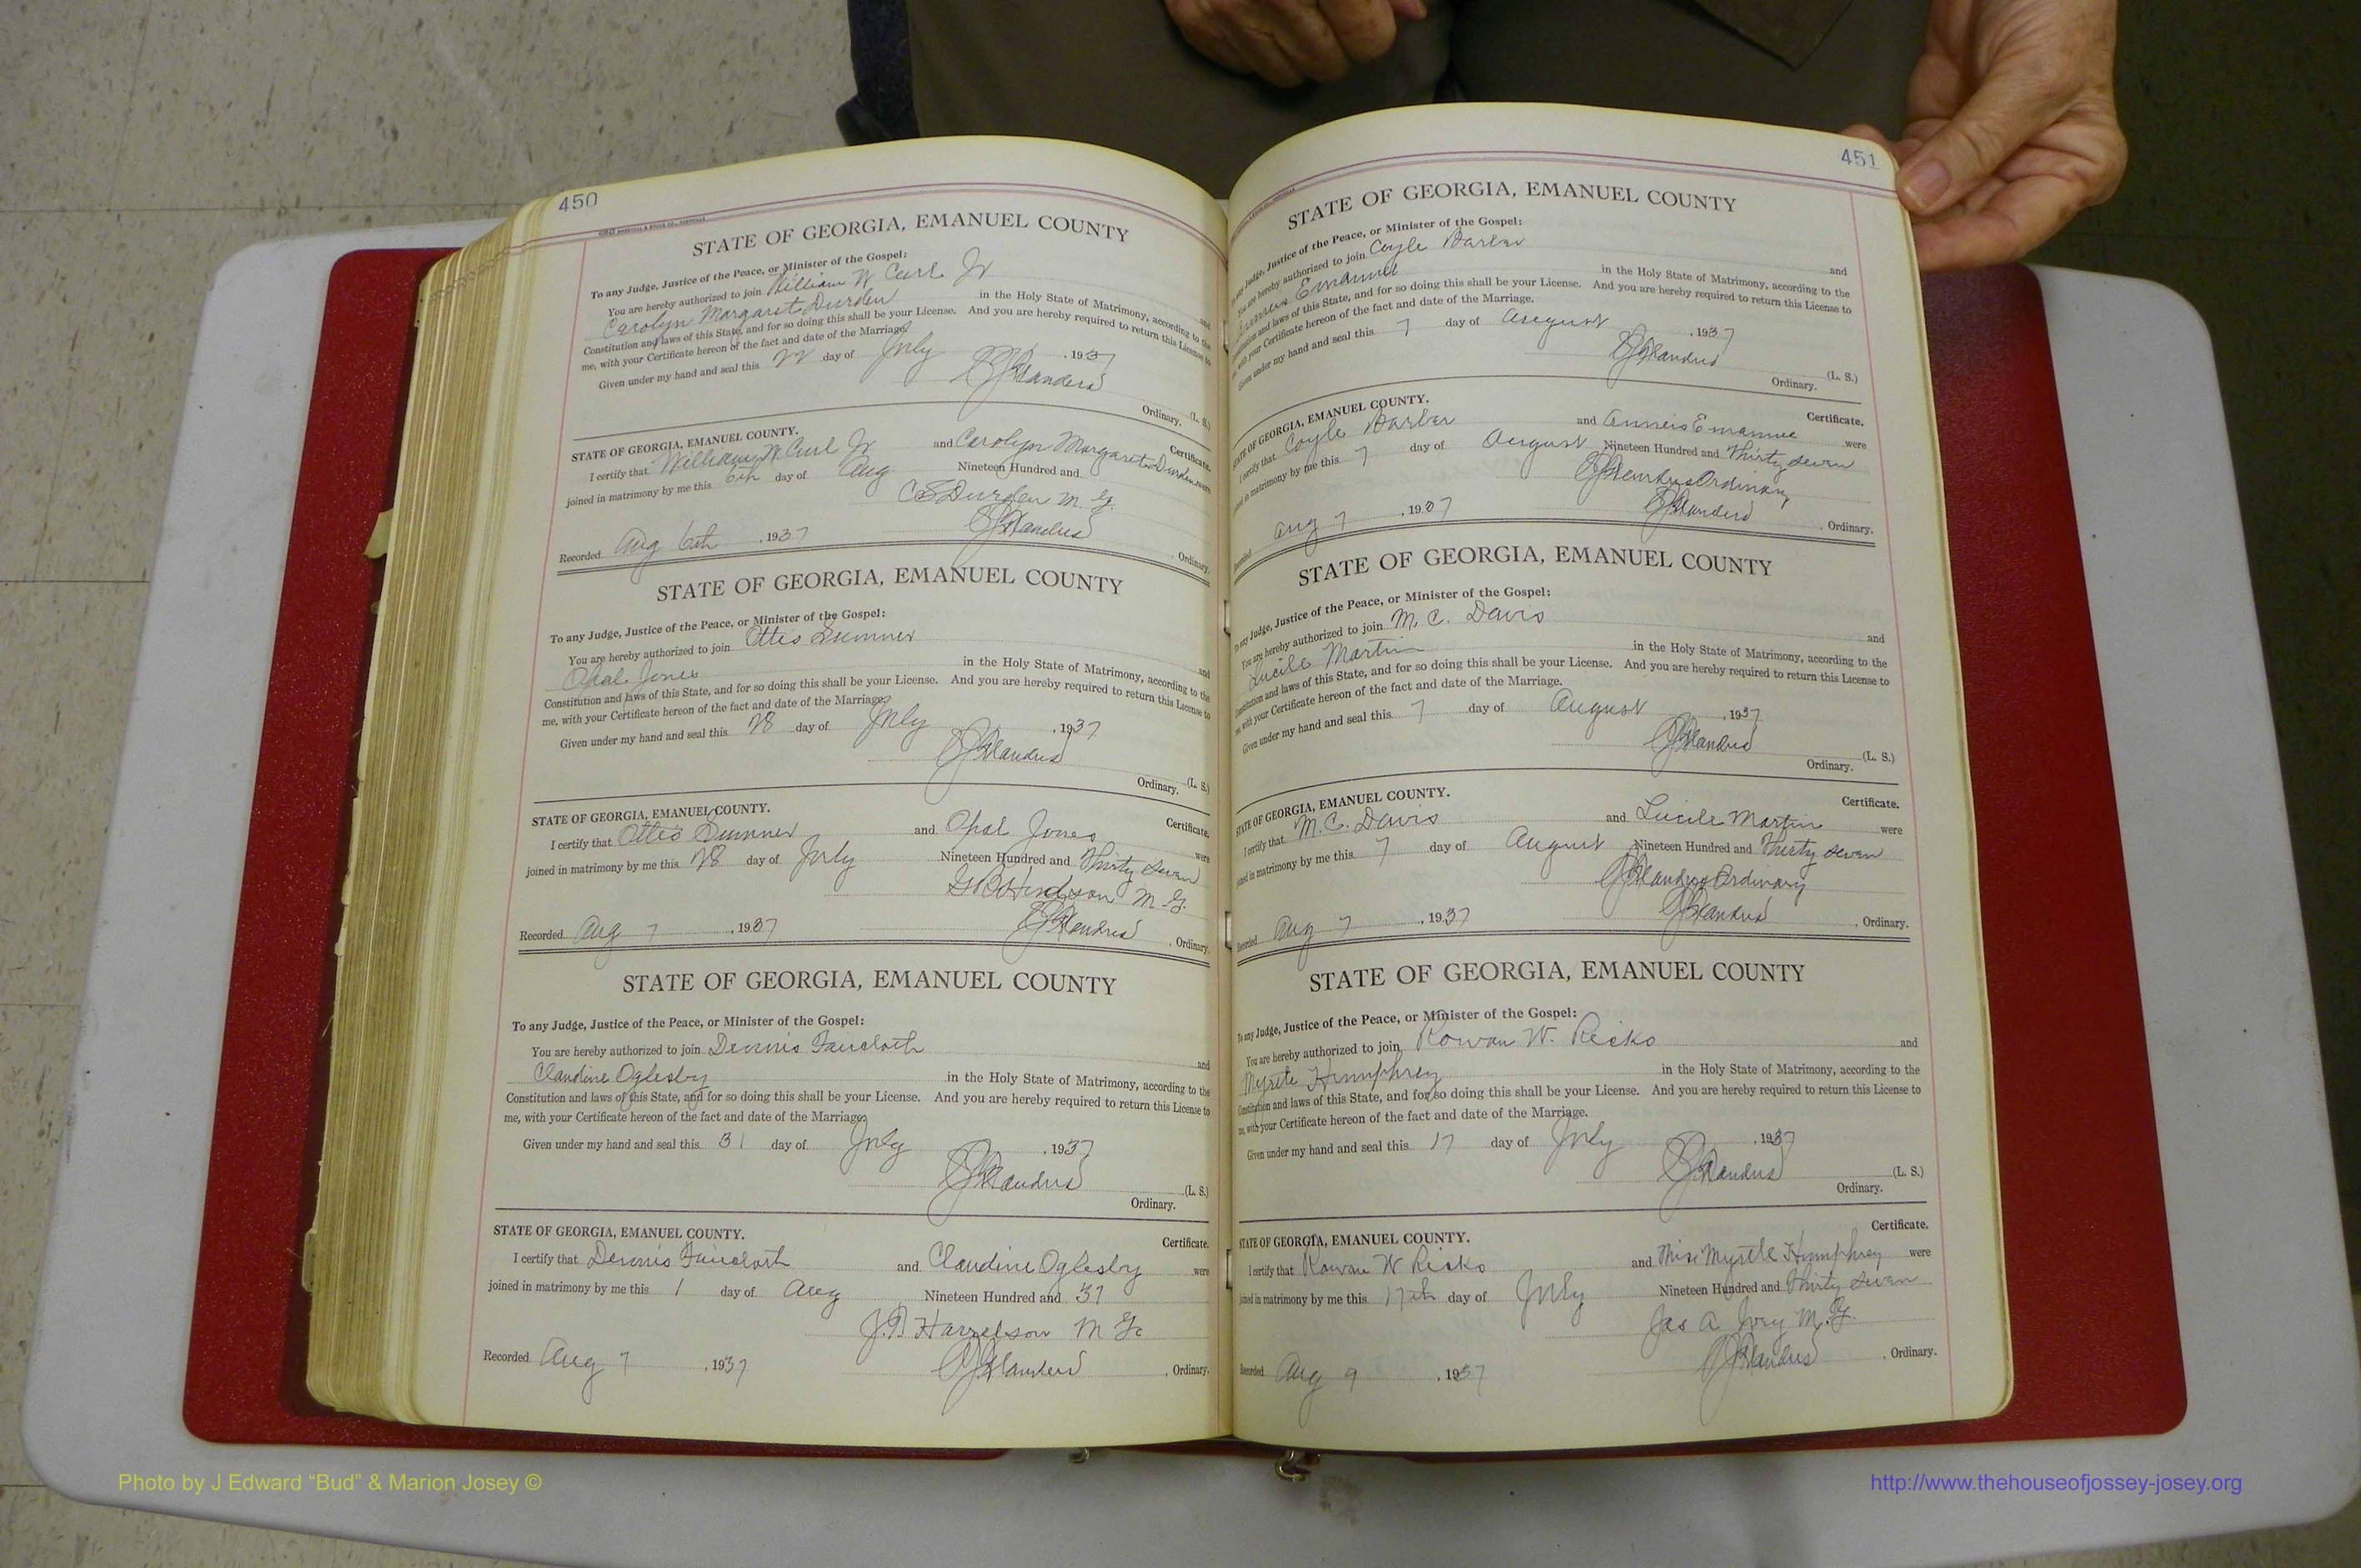 450
STATE OF GEORGIA, EMANUEL COUNTY
To any Judge, Justice of the Peace, or Minister of the Gospel:
You are hereby authorized to join William W Curl Jr and
Carolyn Margaret Durden in the Holy State of Matrimony, according to the
Constitution and laws of this State, and for so doing this shall be your License. And you are hereby required to return this License to
me, with your Certificate hereon of the fact and date of the Marriage.
Given under my hand and seal this 22 day of July, 1937
(L. S.)
Ordinary.
STATE OF GEORGIA, EMANUEL COUNTY. Certificate.
I certify that William W Curl Jr and Carolyn Margaret Durden were
joined in matrimony by me this 6th day of Aug Nineteen Hundred and
C E Durden M. G.
Recorded Aug 6th, 1937 , Ordinary.
STATE OF GEORGIA, EMANUEL COUNTY
To any Judge, Justice of the Peace, or Minister of the Gospel:
You are hereby authorized to join Ottis Sumner and
Opal Jones in the Holy State of Matrimony, according to the
Constitution and laws of this State, and for so doing this shall be your License. And you are hereby required to return this License to
me, with your Certificate hereon of the fact and date of the Marriage.
Given under my hand and seal this 28 day of July, 1937
(L. S.)
Ordinary.
STATE OF GEORGIA, EMANUEL COUNTY. Certificate.
I certify that Ottis Sumner and Opal Jones were
joined in matrimony by me this 28 day of July Nineteen Hundred and Thirty Seven
M. G.
Recorded Aug 7, 1937 , Ordinary.
STATE OF GEORGIA, EMANUEL COUNTY
To any Judge, Justice of the Peace, or Minister of the Gospel:
You are hereby authorized to join Dennis Faircloth and
Claudine Oglesby in the Holy State of Matrimony, according to the
Constitution and laws of this State, and for so doing this shall be your License. And you are hereby required to return this License to
me, with your Certificate hereon of the fact and date of the Marriage.
Given under my hand and seal this 31 day of July, 1937
(L. S.)
Ordinary.
STATE OF GEORGIA, EMANUEL COUNTY. Certificate.
I certify that Dennis Faircloth and Claudine Oglesby were
joined in matrimony by me this 1 day of Aug Nineteen Hundred and 37
J. B Harrelson M G
Recorded Aug 7, 1937 , Ordinary.
451
STATE OF GEORGIA, EMANUEL COUNTY
To any Judge, Justice of the Peace, or Minister of the Gospel:
You are hereby authorized to join Coyle and
Emanuel in the Holy State of Matrimony, according to the
Constitution and laws of this State, and for so doing this shall be your License. And you are hereby required to return this License to
me, with your Certificate hereon of the fact and date of the Marriage.
Given under my hand and seal this 7 day of August, 1937
(L. S.)
Ordinary.
STATE OF GEORGIA, EMANUEL COUNTY. Certificate.
I certify that Coyle and were
joined in matrimony by me this 7 day of August Nineteen Hundred and Thirty Seven
Ordinary
Recorded Aug 7, 1937 , Ordinary.
STATE OF GEORGIA, EMANUEL COUNTY
To any Judge, Justice of the Peace, or Minister of the Gospel:
You are hereby authorized to join M. C. Davis and
Lucile Martin in the Holy State of Matrimony, according to the
Constitution and laws of this State, and for so doing this shall be your License. And you are hereby required to return this License to
me, with your Certificate hereon of the fact and date of the Marriage.
Given under my hand and seal this 7 day of August, 1937
(L. S.)
Ordinary.
STATE OF GEORGIA, EMANUEL COUNTY. Certificate.
I certify that M. C. Davis and Lucile Martin were
joined in matrimony by me this 7 day of August Nineteen Hundred and Thirty Seven
Ordinary
Recorded Aug 7, 1937 , Ordinary.
STATE OF GEORGIA, EMANUEL COUNTY
To any Judge, Justice of the Peace, or Minister of the Gospel:
You are hereby authorized to join Rowan W. Ricks and
Myrtle Humphrey in the Holy State of Matrimony, according to the
Constitution and laws of this State, and for so doing this shall be your License. And you are hereby required to return this License to
me, with your Certificate hereon of the fact and date of the Marriage.
Given under my hand and seal this 17 day of July, 1937
(L. S.)
Ordinary.
STATE OF GEORGIA, EMANUEL COUNTY. Certificate.
I certify that Rowan W Ricks and Miss Myrtle Humphrey were
joined in matrimony by me this 17th day of July Nineteen Hundred and Thirty Seven
Jas A Ivey M. G.
Recorded Aug 9, 1937 , Ordinary.
Photo by J Edward “Bud” & Marion Josey ©
http://www.thehouseofjossey-josey.org